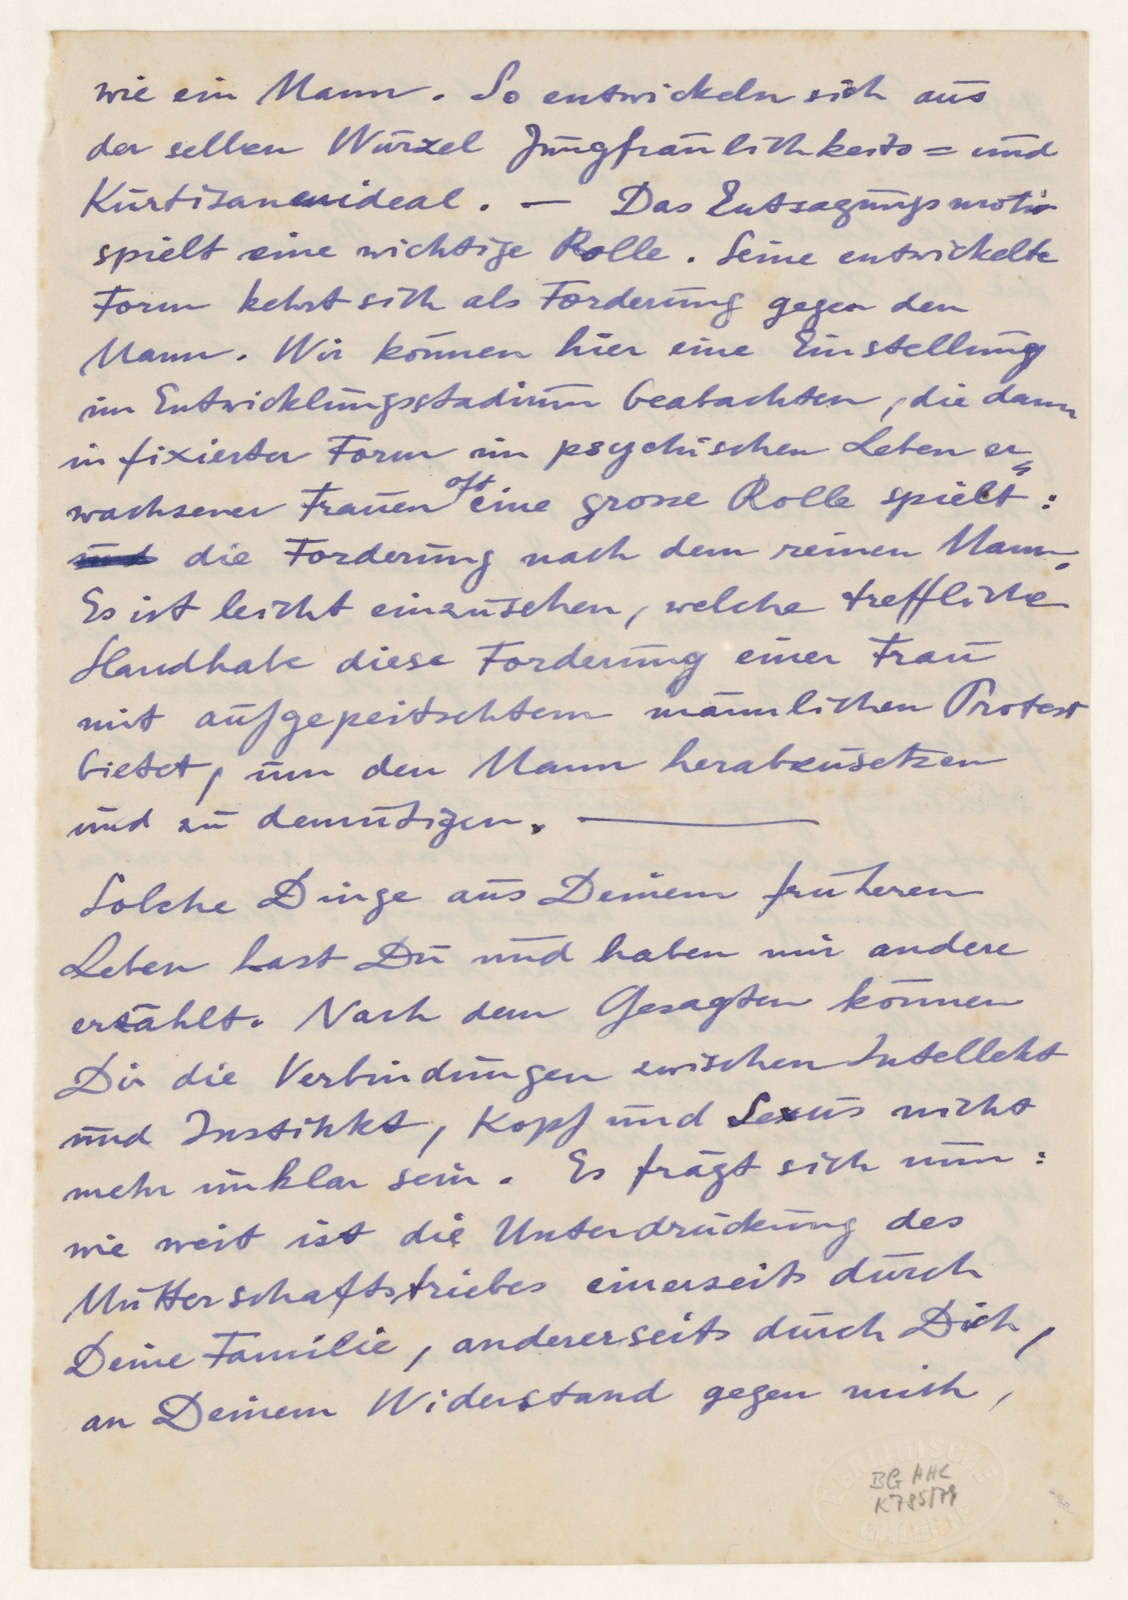 wie ein Mann. So entwickeln sich aus
der selben Wurzel Jungfraulichkeits= und
Kurtisanenideal. — Das Entsagungsmotiv
spielt eine wichtige Rolle. Seine entwickelte
Form kehrt sich als Forderung gegen den
Mann. Wir können hier eine Einstellung
im Entwicklungsstadium beobachten, die dann
in fixierter Form im psychischen Leben er=
wachsener Frauen oft eine grosse Rolle spielt:
die Forderung nach dem reinen Mann.
Es ist leicht einzusehen, welche treffliche
Handhabe diese Forderung einer Frau
mit aufgepeitschtem männlichen Protest
bietet, um den Mann herabzusetzen
und zu demütigen. —
Solche Dinge aus Deinem früheren
Leben hast Du und haben mir andere
erzählt. Nach dem Gesagten können
Dir die Verbindungen zwischen Intellekt
und Instinkt, Kopf und Sexus nicht
mehr unklar sein. Es frägt sich nun:
wie weit ist die Unterdrückung des
Mutterschaftstriebes einerseits durch
Deine Familie, andererseits durch Dich,
an Deinem Widerstand gegen mich,
BG HHC
K795/79